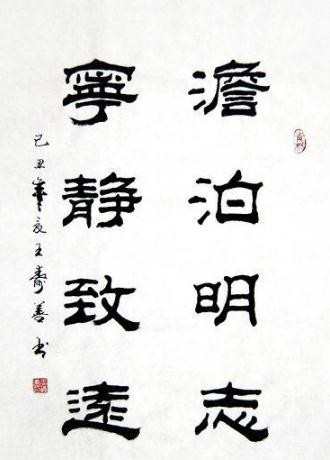 澹泊明志
寧靜致遠
己丑年夏王壽善书